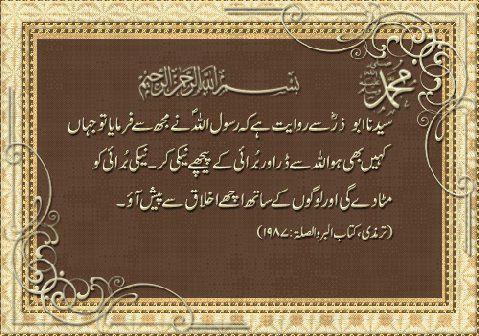 بسم الله الرحمن الرحيم
محمد صلى الله عليه وسلم
سیدنا ابو ذرؓ سے روایت ہے کہ رسول اللہؐ نے مجھ سے فرمایا تو جہاں
کہیں بھی ہو اللہ سے ڈر اور بُرائی کے پیچھے نیکی کر۔ نیکی بُرائی کو
مٹا دے گی اور لوگوں کے ساتھ اچھے اخلاق سے پیش آؤ۔
(ترمذی، کتاب البر والصلة: ۱۹۸۷)